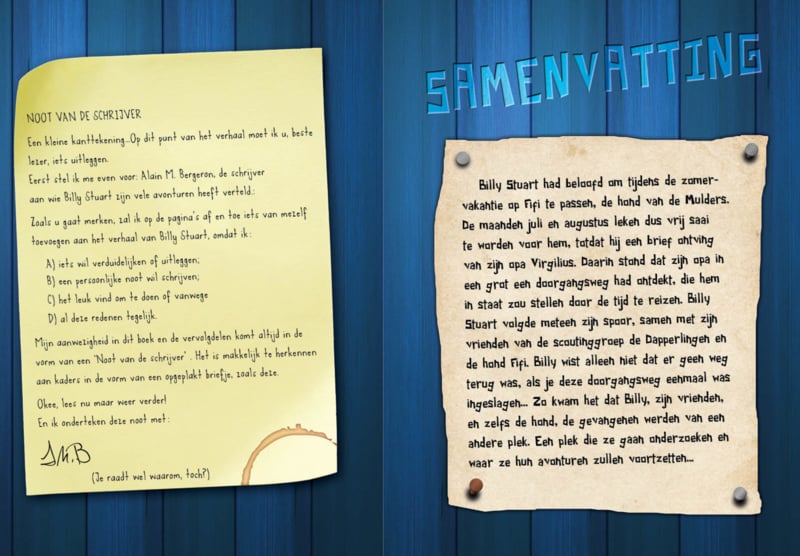 NOOT VAN DE SCHRIJVER
Een kleine kanttekening...Op dit punt van het verhaal moet ik u, beste
lezer, iets uitleggen.
Eerst stel ik me even voor: Alain M. Bergeron, de schrijver
aan wie Billy Stuart zijn vele avonturen heeft verteld.:
Zoals u gaat merken, zal ik op de pagina's af en toe iets van mezelf
toevoegen aan het verhaal van Billy Stuart, omdat ik :
A) iets wil verduidelijken of uitleggen;
B) een persoonlijke noot wil schrijven;
C) het leuk vind om te doen of vanwege
D) al deze redenen tegelijk.
Mijn aanwezigheid in dit boek en de vervolgdelen komt altijd in de
vorm van een 'Noot van de schrijver' . Het is makkelijk te herkennen
aan kaders in de vorm van een opgeplakt briefje, zoals deze.
Okee, lees nu maar weer verder!
En ik onderteken deze noot met:
A.M.B
(Je raadt wel waarom, toch?)
SAMENVATTING
Billy Stuart had beloofd om tijdens de zomer-
vakantie op Fifi te passen, de hond van de Mulders.
De maanden juli en augustus leken dus vrij saai
te worden voor hem, totdat hij een brief ontving
van zijn opa Virgilius. Daarin stond dat zijn opa in
een grot een doorgangsweg had ontdekt, die hem
in staat zou stellen door de tijd te reizen. Billy
Stuart volgde meteen zijn spoor, samen met zijn
vrienden van de scoutinggroep de Dapperlingen en
de hond Fifi. Billy wist alleen niet dat er geen weg
terug was, als je deze doorgangsweg eenmaal was
ingeslagen... Zo kwam het dat Billy, zijn vrienden,
en zelfs de hond, de gevangenen werden van een
andere plek. Een plek die ze gaan onderzoeken en
waar ze hun avonturen zullen voortzetten...